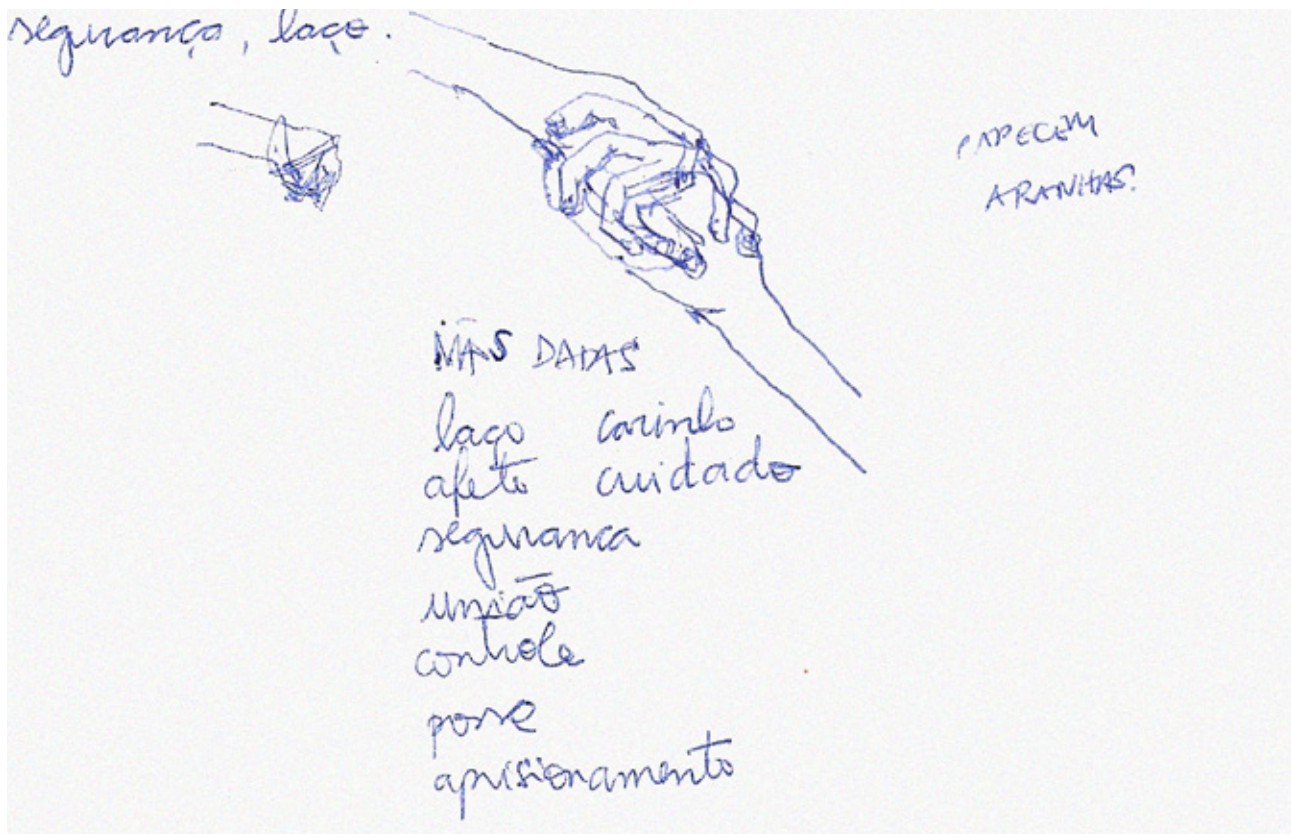 segurança, laço.
PARECEM
ARANHAS.
MÃOS DADAS
laço carinho
afeto cuidado
seguranca
união
controle
posse
aprisionamento